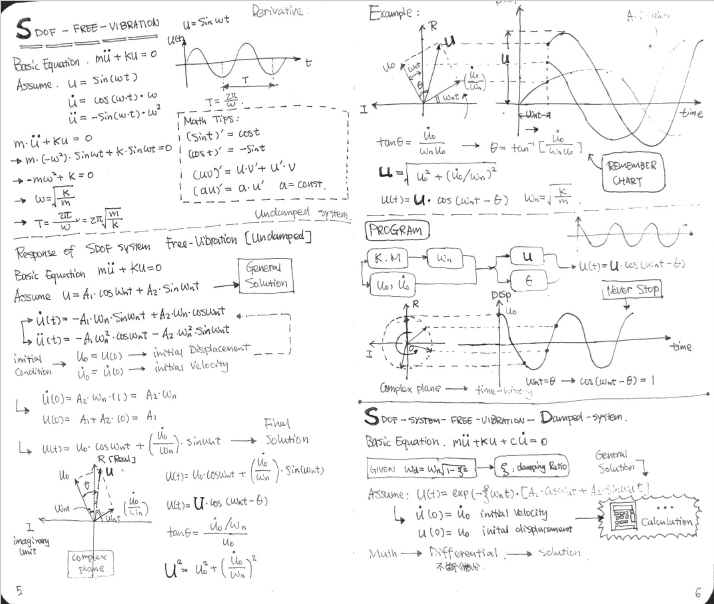 Derivative.
SDOF-FREE-VIBRATION
u = Sin wt
u(t)
t
T
T = 2π/w
Basic Equation. mü + ku = 0
Assume. u = sin(wt)
u̇ = cos(w·t)·w
ü = -Sin(w·t)·w²
m·ü + ku = 0
→ m·(-w²)·Sinwt + k·Sinwt = 0
→ -mw² + k = 0
→ w = √(k/m)
→ T = 2π/w = 2π√(m/k)
Math Tips:
(sint)' = cost
(cost)' = -sint
(uv)' = u·v' + u'·v
(au)' = a·u' a = const.
Undamped system.
Response of SDOF system Free-Vibration [Undamped]
Basic Equation mü + ku = 0
Assume u = A₁·coswnt + A₂·Sinwnt → General Solution
u̇(t) = -A₁·wn·Sinwnt + A₂·wn·coswnt
ü(t) = -A₁wn²·coswnt - A₂wn²·Sinwnt
initial Condition
u₀ = u(0) → initial Displacement
u̇₀ = u̇(0) → initial Velocity
u̇(0) = A₂·wn·(1) = A₂·wn
u(0) = A₁ + A₂·(0) = A₁
u(t) = u₀·coswnt + (u̇₀/wn)·sinwnt → Final Solution
R [Real]
u₀
u
θ
wnt
wnt
(u̇₀/wn)
I
imaginary unit
complex plane
u(t) = u₀·coswnt + (u̇₀/wn)·Sin(wnt)
u(t) = u·cos(wnt-θ)
tanθ = (u̇₀/wn)/u₀
u² = u₀² + (u̇₀/wn)²
5
Example:
R
u₀
u
wnt
θ
(u̇₀/wn)
wnt
I
u
wnt
time
tanθ = u̇₀/(wnu₀) → θ = tan⁻¹[u̇₀/(wnu₀)]
REMEMBER CHART
u = √(u₀² + (u̇₀/wn)²)
u(t) = u·cos(wnt-θ) wn = √(k/m)
PROGRAM
K.M
wn
u
u₀, u̇₀
θ
u(t) = u·cos(wnt-θ)
Never Stop
R
DISP
u₀
I
time
wnt=θ → cos(wnt-θ) = 1
complex plane → time-history
SDOF-SYSTEM-FREE-VIBRATION-Damped-system.
Basic Equation. mü + ku + cu̇ = 0
GIVEN wd = wn√(1-ξ²) → ξ: damping Ratio
General Solution
Assume: u(t) = exp(-ξwnt)·[A₁·coswt + A₂·Sinwt]
u̇(0) = u̇₀ initial velocity
u(0) = u₀ inital displacement
Calculation
Math → Differential → Solution
6